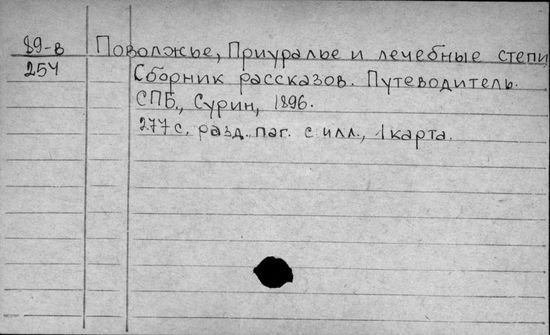 89-в Поволжье, Приуралье и лечебные степи
254 Сборник рассказов. Путеводитель.
СПБ., Сурин, 1896.
277 с. разд. паг. с илл., 1 карта.